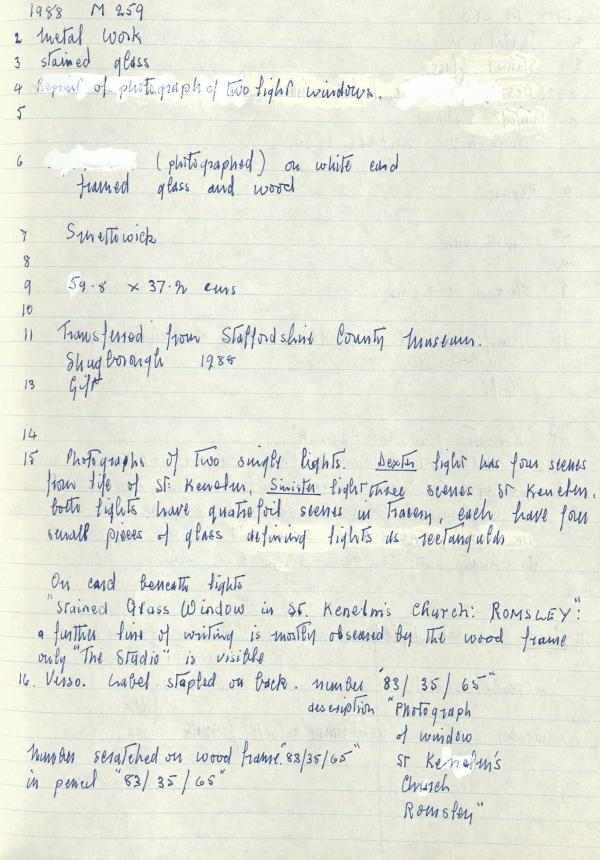 1988 M 259
2 Metal work
3 stained glass
4 Reprint of photograph of two light windows.
5
6 (photographed) on white card
framed glass and wood
7 Smethwick
8
9 59.8 x 37.2 cms
10
11 Transferred from Staffordshire County Museum.
Shugborough 1988
13 Gift
14
15 Photographs of two single lights. Dexter light has four scenes
from life of St. Kenelm, Sinister light three scenes St Kenelm.
both lights have quatrefoil scenes in tracery, each have four
small pieces of glass defining lights as rectangular
On card beneath lights
"Stained Glass Window in St. Kenelm's Church: ROMSLEY":
a further line of writing is mostly obscured by the wood frame
only "The Studio" is visible
16. Verso. Label stapled on back. number "83/35/65"
description "Photograph
of window
St Kenelm's
Church
Romsley"
Number scratched on wood frame "83/35/65"
in pencil "83/35/65"